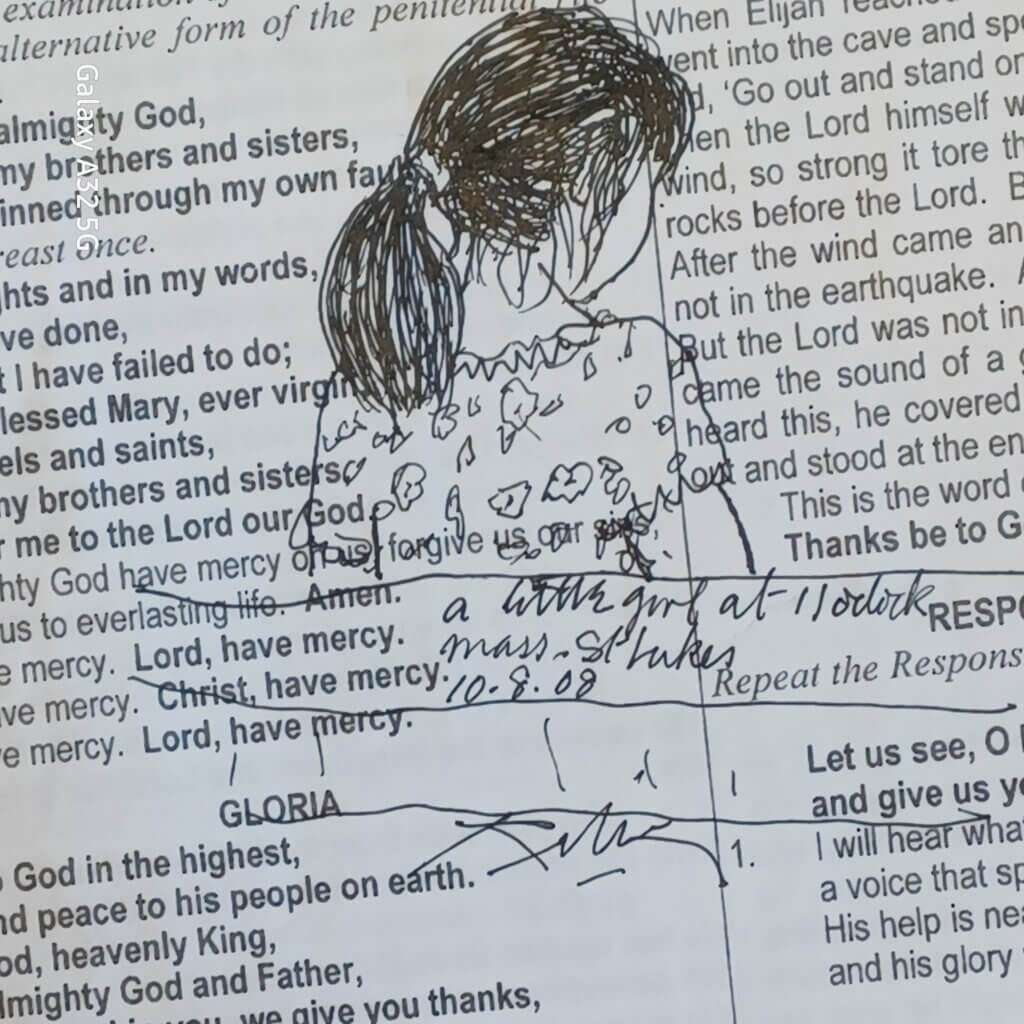 examination of
alternative form of the penitential
almighty God,
my brothers and sisters,
inned through my own fau
reast once.
ghts and in my words,
ve done,
t I have failed to do;
lessed Mary, ever virgin
els and saints,
my brothers and sisters
r me to the Lord our God.
hty God have mercy on us, forgive us our sins,
us to everlasting life. Amen.
e mercy. Lord, have mercy.
ve mercy. Christ, have mercy.
e mercy. Lord, have mercy.
GLORIA
o God in the highest,
nd peace to his people on earth.
od, heavenly King,
lmighty God and Father,
we give you thanks,
When Elijah reached
went into the cave and spe
d, 'Go out and stand on
hen the Lord himself w
wind, so strong it tore th
rocks before the Lord. B
After the wind came an
not in the earthquake. A
But the Lord was not in
came the sound of a g
heard this, he covered
out and stood at the en
This is the word o
Thanks be to G
RESPO
Repeat the Respons
Let us see, O
and give us yo
1. I will hear what
a voice that sp
His help is nea
and his glory
a little girl at 11 oclock
mass. St Lukes
10.8.08
Galaxy A32 5G